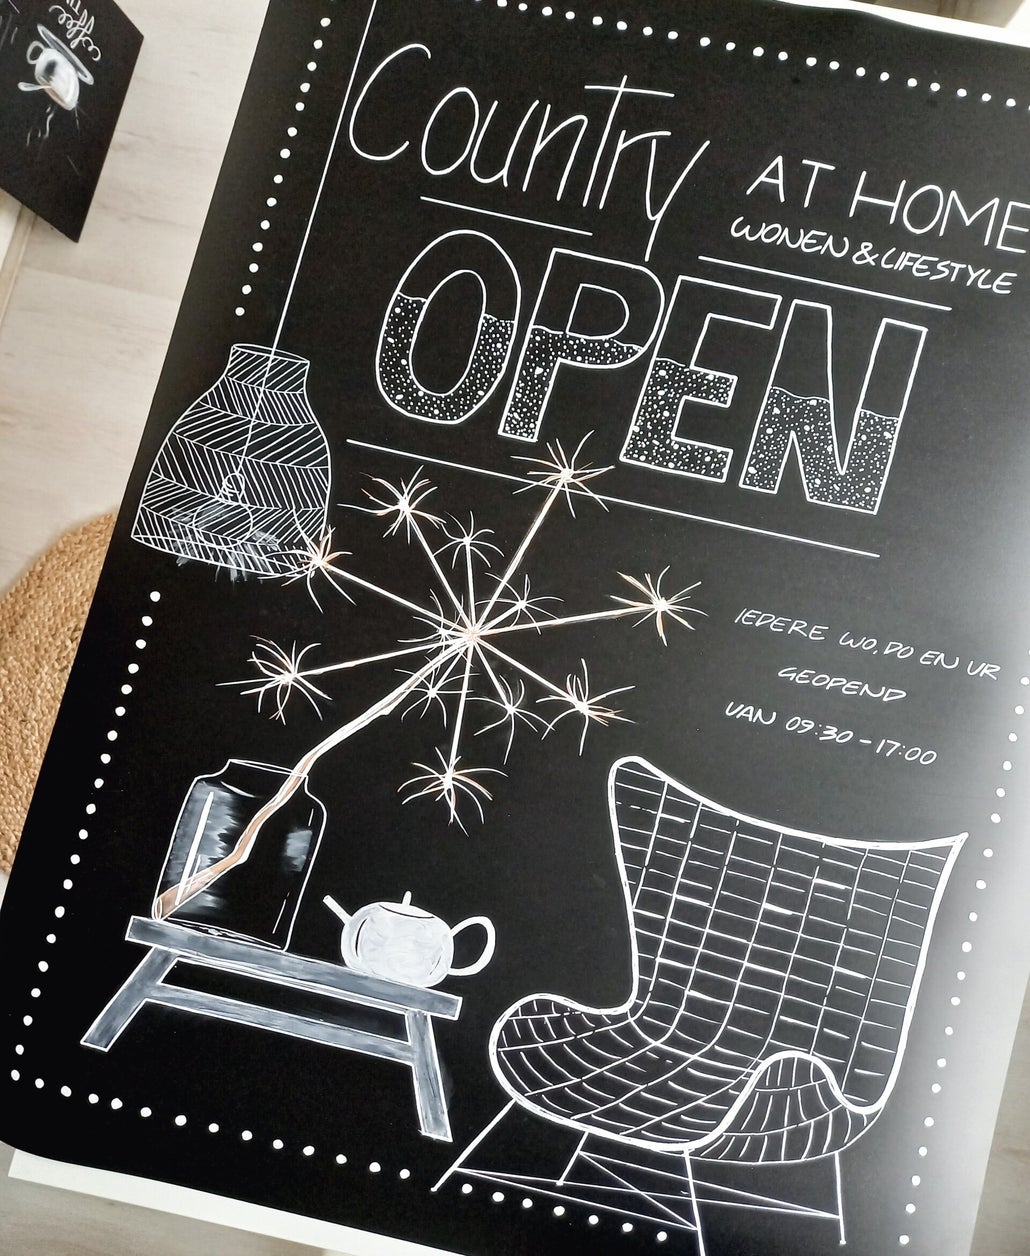 Country
AT HOME
WONEN & LIFESTYLE
OPEN
IEDERE WO, DO EN VR
GEOPEND
VAN 09:30 - 17:00
coffee